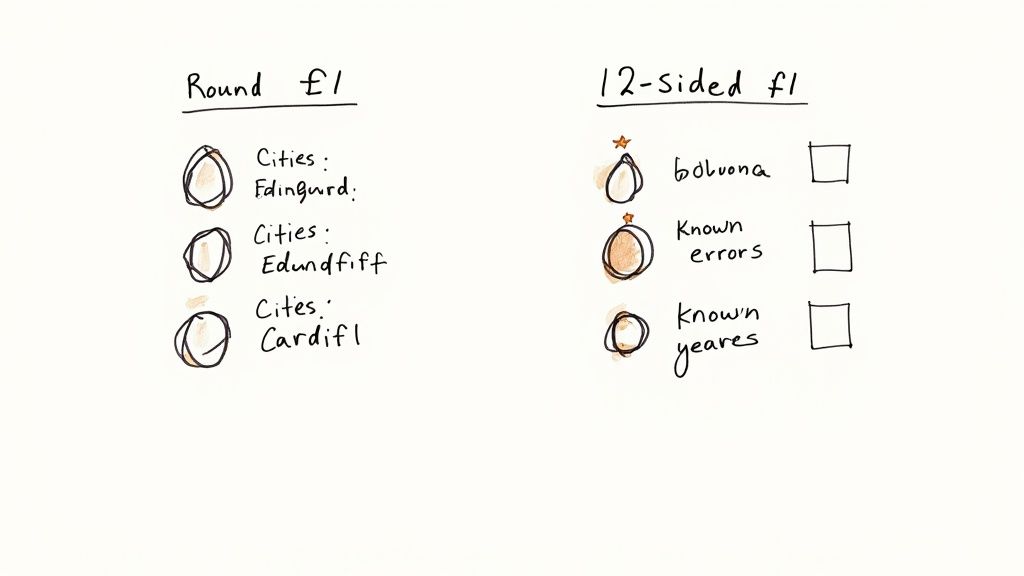 Round £1
Cities:
Edingurd:
Cities:
Edundfiff
Cities:
Cardifl
12-sided £1
bolvona
Known
errors
Known
yeares